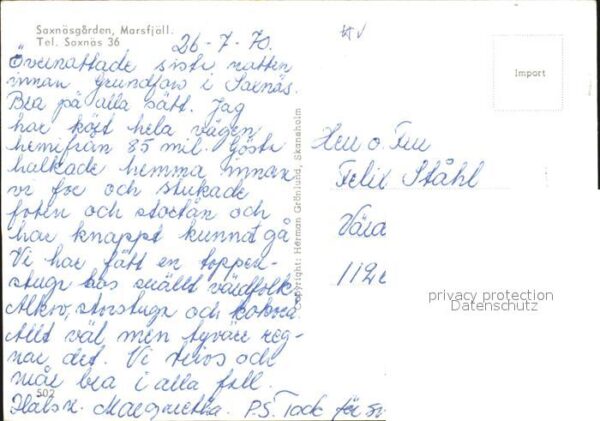 Saxnäsgården, Marsfjäll.
Tel. Saxnäs 36
26-7-70.
Övernattade sista natten
innan Grundfors i Saxnäs.
Bra på alla sätt. Jag
har kört hela vägen
hemifrån 85 mil. Gösta
halkade hemma innan
vi for och stukade
foten och stortån och
har knappt kunnat gå
Vi har fått en toppen-
stuga hos snällt värdfolk
Alkov, storstuga och kokvrå
Allt väl men tyvärr reg-
nar det. Vi trivs och
mår bra i alla fall.
502
Hälsn. Margaretha. P.S. Tack för
Copyright: Herman Grönlund, Skansholm
Import
Herr o. Fru
Felix Ståhl
Vara
privacy protection
Datenschutz